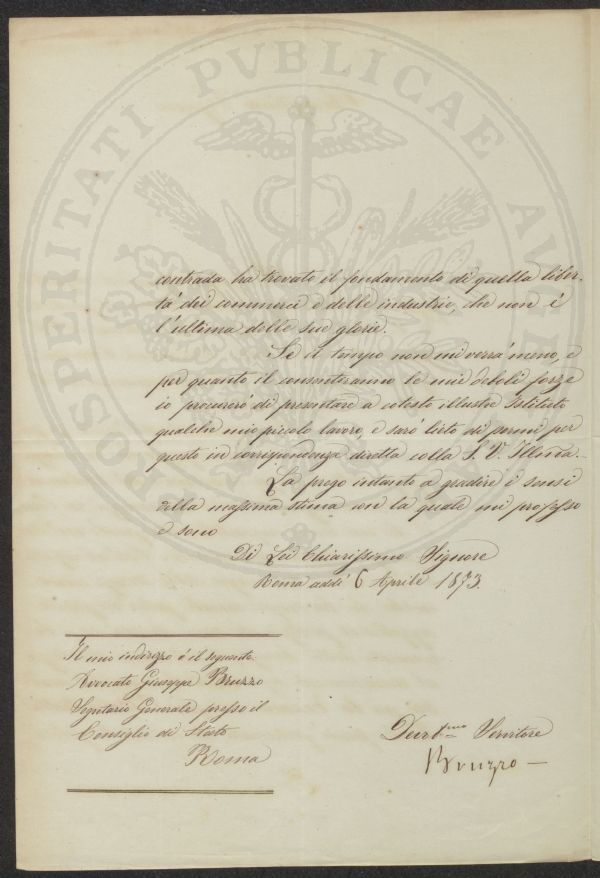 PROSPERITATI PVBLICAE AVGE
contrada ha trovato il fondamento di quella liber-
tà dei commerci e delle industrie, che non è
l'ultima delle sue glorie.
Se il tempo non mi verrà meno, e
per quanto il consentiranno le mie deboli forze
io procurerò di presentare a cotesto illustre Istituto
qualche mio piccolo lavoro, e sarò lieto di pormi per
questo in corrispondenza diretta colla S. V. Illma.
La prego intanto a gradire i sensi
della massima stima con la quale mi professo
e sono
Di Lei Chiarissimo Signore
Roma addì 6 Aprile 1873.
Il mio indirizzo è il seguente.
Avvocato Giuseppe Bruzzo
Segretario Generale presso il
Consiglio di Stato
Roma
Servitore
Bruzzo